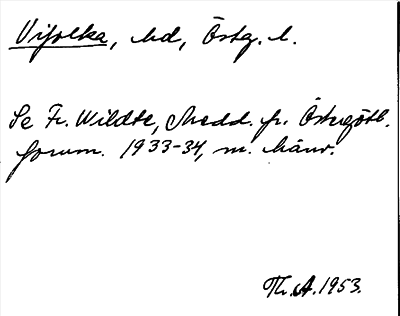 Vifolka, hd, Östg. l.
Se Fr. Wildte, Medd. fr. Östergötl.
fornm. 1933-34, m. hänv.
Th. A. 1953.